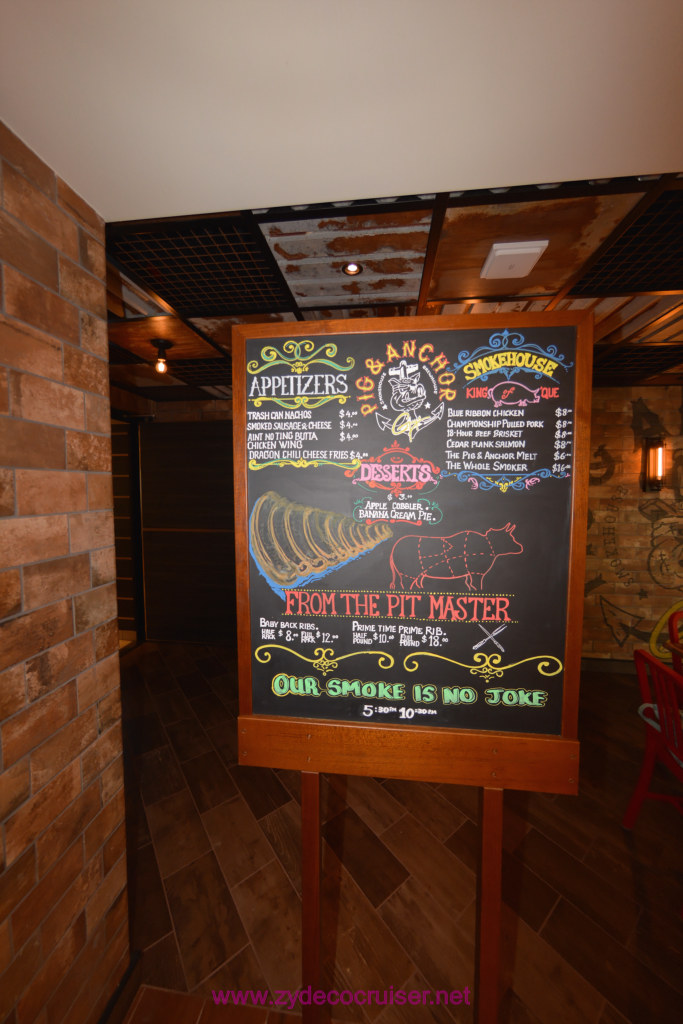 PIG & ANCHOR
APPETIZERS
TRASH CAN NACHOS $4.00
SMOKED SAUSAGE & CHEESE $4.00
AINT NO TING BUTTA
CHICKEN WING $4.00
DRAGON CHILI CHEESE FRIES $4.00
SMOKEHOUSE
KING of 'QUE
BLUE RIBBON CHICKEN $8.00
CHAMPIONSHIP PULLED PORK $8.00
18-HOUR BEEF BRISKET $8.00
CEDAR PLANK SALMON $8.00
THE PIG & ANCHOR MELT $6.00
THE WHOLE SMOKER $16.00
DESSERTS
$ 3.00
APPLE COBBLER.
BANANA CREAM PIE.
FROM THE PIT MASTER
BABY BACK RIBS.
HALF RACK $8.00 FULL RACK $12.00
PRIME TIME PRIME RIB.
HALF POUND $10.00 FULL POUND $18.00
OUR SMOKE IS NO JOKE
5:30PM 10:30PM
www.zydecocruiser.net